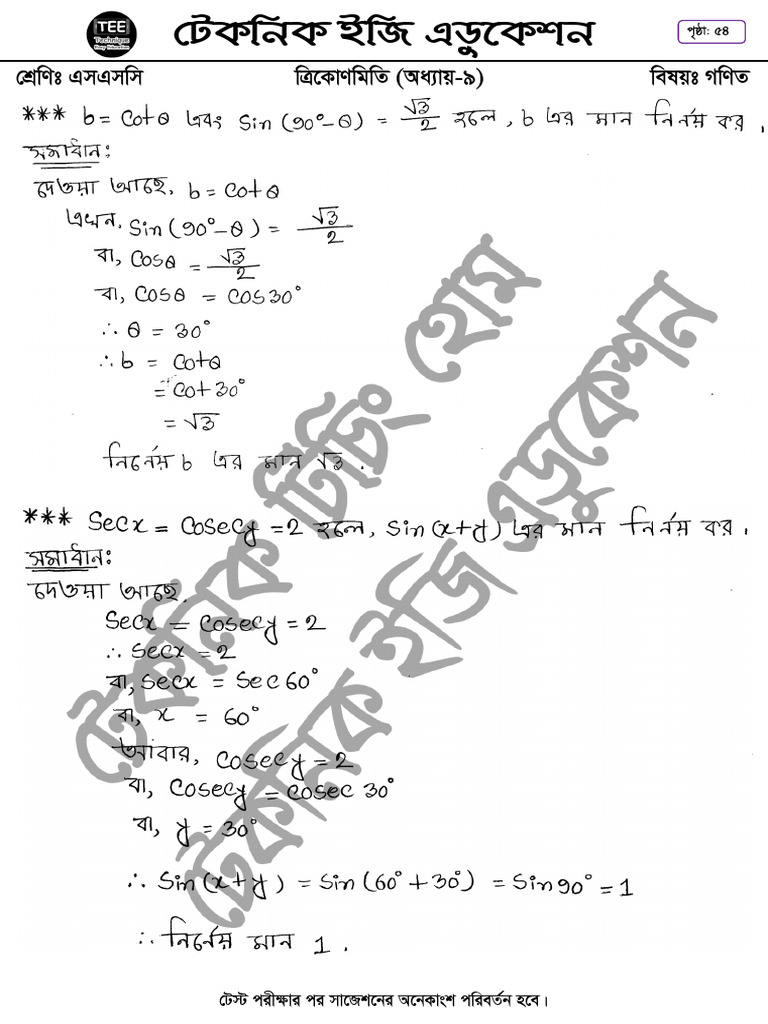 TEE
Technique
Easy Education
টেকনিক ইজি এডুকেশন
পৃষ্ঠা: ৫৪
শ্রেণিঃ এসএসসি ত্রিকোণমিতি (অধ্যায়-৯) বিষয়ঃ গণিত
*** b = cotθ এবং sin (90° – θ) = √3/2 হলে, b এর মান নির্নয় কর।
সমাধান:
দেওয়া আছে, b = cotθ
এখন, sin (90° – θ) = √3/2
বা, cosθ = √3/2
বা, cosθ = cos30°
∴ θ = 30°
∴ b = cotθ
= cot30°
= √3
নির্নেয় b এর মান √3 .
*** secx = cosecy = 2 হলে, sin (x+y) এর মান নির্নয় কর।
সমাধান:
দেওয়া আছে,
secx = cosecy = 2
∴ secx = 2
বা, secx = sec60°
বা, x = 60°
আবার, cosecy = 2
বা, cosecy = cosec 30°
বা, y = 30°
∴ sin (x+y) = sin (60° + 30°) = sin90° = 1
∴ নির্নেয় মান 1 .
টেকনিক টিচিং হোম
টেকনিক ইজি এডুকেশন
টেস্ট পরীক্ষার পর সাজেশনের অনেকাংশ পরিবর্তন হবে।